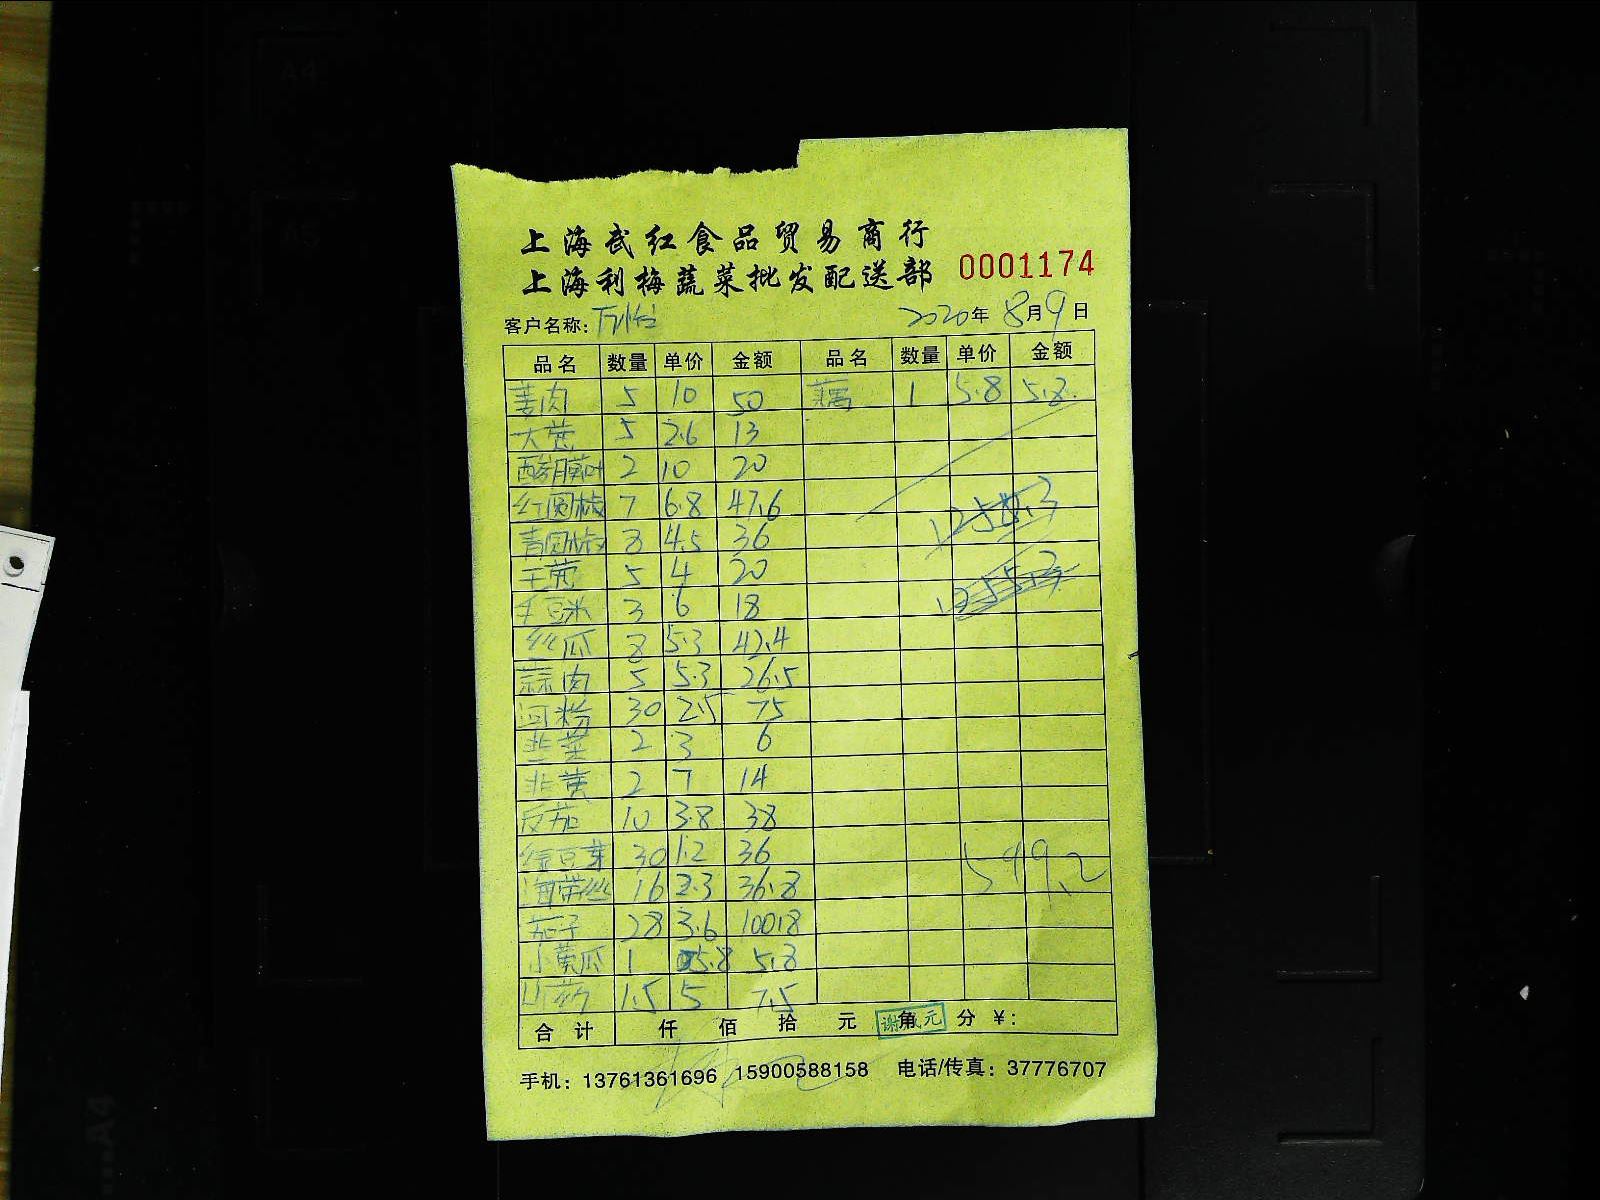 A4
A5
上海武红食品贸易商行
上海利梅蔬菜批发配送部 0001174
客户名称: 2020年8月9日
品名 数量 单价 金额 品名 数量 单价 金额
姜肉 5 10 50 藕 1 5.8 5.8
大葱 5 2.6 13
2 10 20
红圆椒 7 6.8 47.6
青圆椒 8 4.5 36
王葱 5 4 20
毛豆米 3 6 18
丝瓜 8 5.3 42.4
蒜肉 5 5.3 26.5
河粉 30 2.5 75
韭菜 2 3 6
韭黄 2 7 14
反茄 10 3.8 38
绿豆芽 30 1.2 36
海带丝 16 2.3 36.8
茄子 28 3.6 100.8
小黄瓜 1 5.8 5.8
山药 1.5 5 7.5
599.2
合计 仟 佰 拾 元 角 分 ¥:
手机: 13761361696 15900588158 电话/传真: 37776707
A4